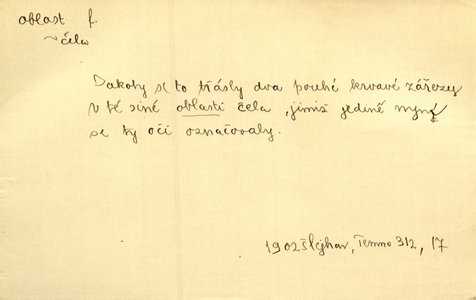 oblast f.
čela
Jakoby se to třásly dva pouhé krvavé zářezy
v té siné oblasti čela, jimiž jedině nyní
se ty oči označovaly.
1902 Šlejhar, Temno 312, 17